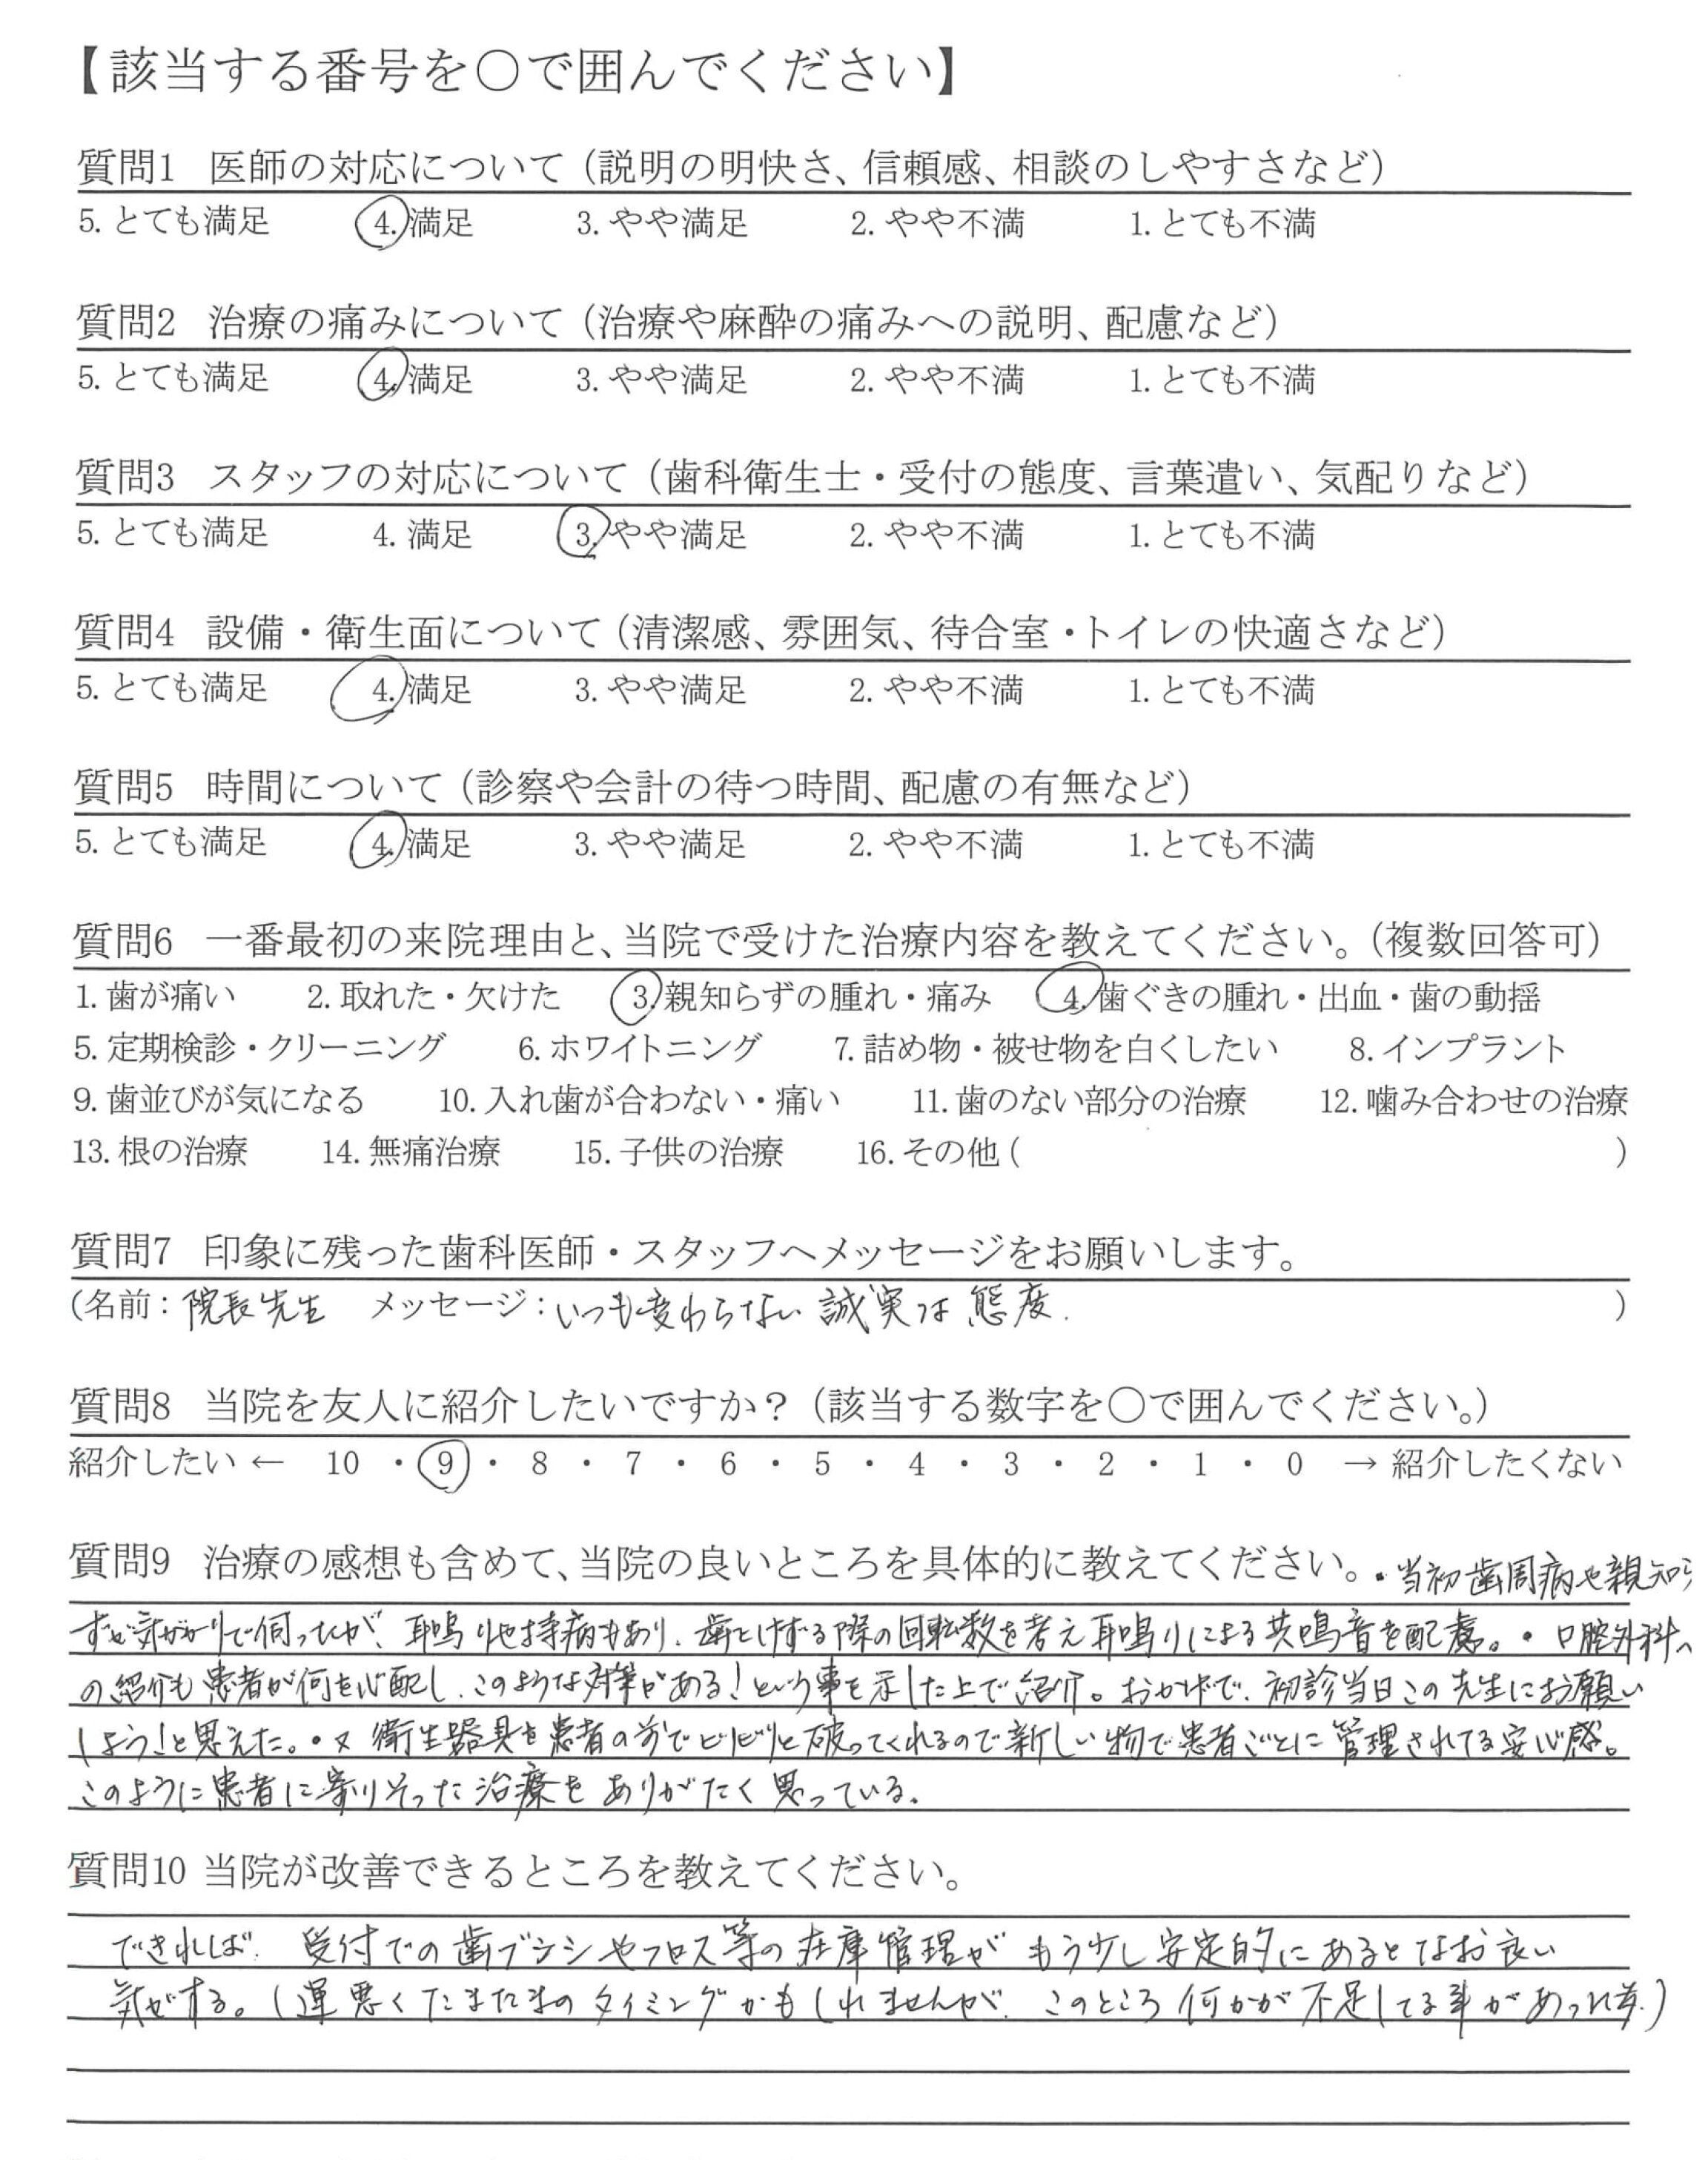 【該当する番号を○で囲んでください】
質問1 医師の対応について（説明の明快さ、信頼感、相談のしやすさなど）
5. とても満足 4. 満足 3. やや満足 2. やや不満 1. とても不満
質問2 治療の痛みについて（治療や麻酔の痛みへの説明、配慮など）
5. とても満足 4. 満足 3. やや満足 2. やや不満 1. とても不満
質問3 スタッフの対応について（歯科衛生士・受付の態度、言葉遣い、気配りなど）
5. とても満足 4. 満足 3. やや満足 2. やや不満 1. とても不満
質問4 設備・衛生面について（清潔感、雰囲気、待合室・トイレの快適さなど）
5. とても満足 4. 満足 3. やや満足 2. やや不満 1. とても不満
質問5 時間について（診察や会計の待つ時間、配慮の有無など）
5. とても満足 4. 満足 3. やや満足 2. やや不満 1. とても不満
質問6 一番最初の来院理由と、当院で受けた治療内容を教えてください。（複数回答可）
1. 歯が痛い 2. 取れた・欠けた 3. 親知らずの腫れ・痛み 4. 歯ぐきの腫れ・出血・歯の動揺
5. 定期検診・クリーニング 6. ホワイトニング 7. 詰め物・被せ物を白くしたい 8. インプラント
9. 歯並びが気になる 10. 入れ歯が合わない・痛い 11. 歯のない部分の治療 12. 噛み合わせの治療
13. 根の治療 14. 無痛治療 15. 子供の治療 16. その他（ ）
質問7 印象に残った歯科医師・スタッフへメッセージをお願いします。
（名前：院長先生 メッセージ：いつも変わらない誠実な態度. ）
質問8 当院を友人に紹介したいですか？（該当する数字を○で囲んでください。）
紹介したい ← 10 ・ 9 ・ 8 ・ 7 ・ 6 ・ 5 ・ 4 ・ 3 ・ 2 ・ 1 ・ 0 → 紹介したくない
質問9 治療の感想も含めて、当院の良いところを具体的に教えてください。・当初歯周病や親知ら
ずが気がかりで伺ったが、耳鳴りや持病もあり、歯をけずる際の回転数を考え耳鳴りによる共鳴音を配慮。・口腔外科へ
の紹介も患者が何を心配し、このような対策がある！という事を示した上で紹介。おかげで、初診当日この先生にお願い
しよう！と思えた。・又 衛生器具を患者の前でビリビリと破ってくれるので新しい物で患者ごとに管理されてる安心感。
このように患者に寄りそった治療をありがたく思っている。
質問10 当院が改善できるところを教えてください。
できれば、受付での歯ブラシやフロス等の在庫管理がもう少し安定的にあるとなお良い
気がする。（運悪くたまたまのタイミングかもしれませんが、このところ何かが不足してる事があった為.）